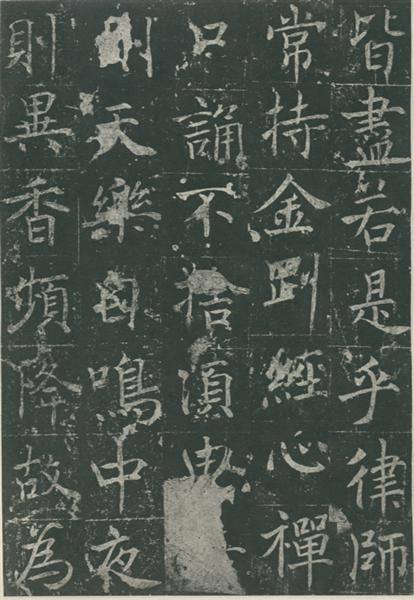 皆盡若是乎律師
常持金剛經心禪
口誦不捨須
天樂自鳴中夜
則異香頻降故為